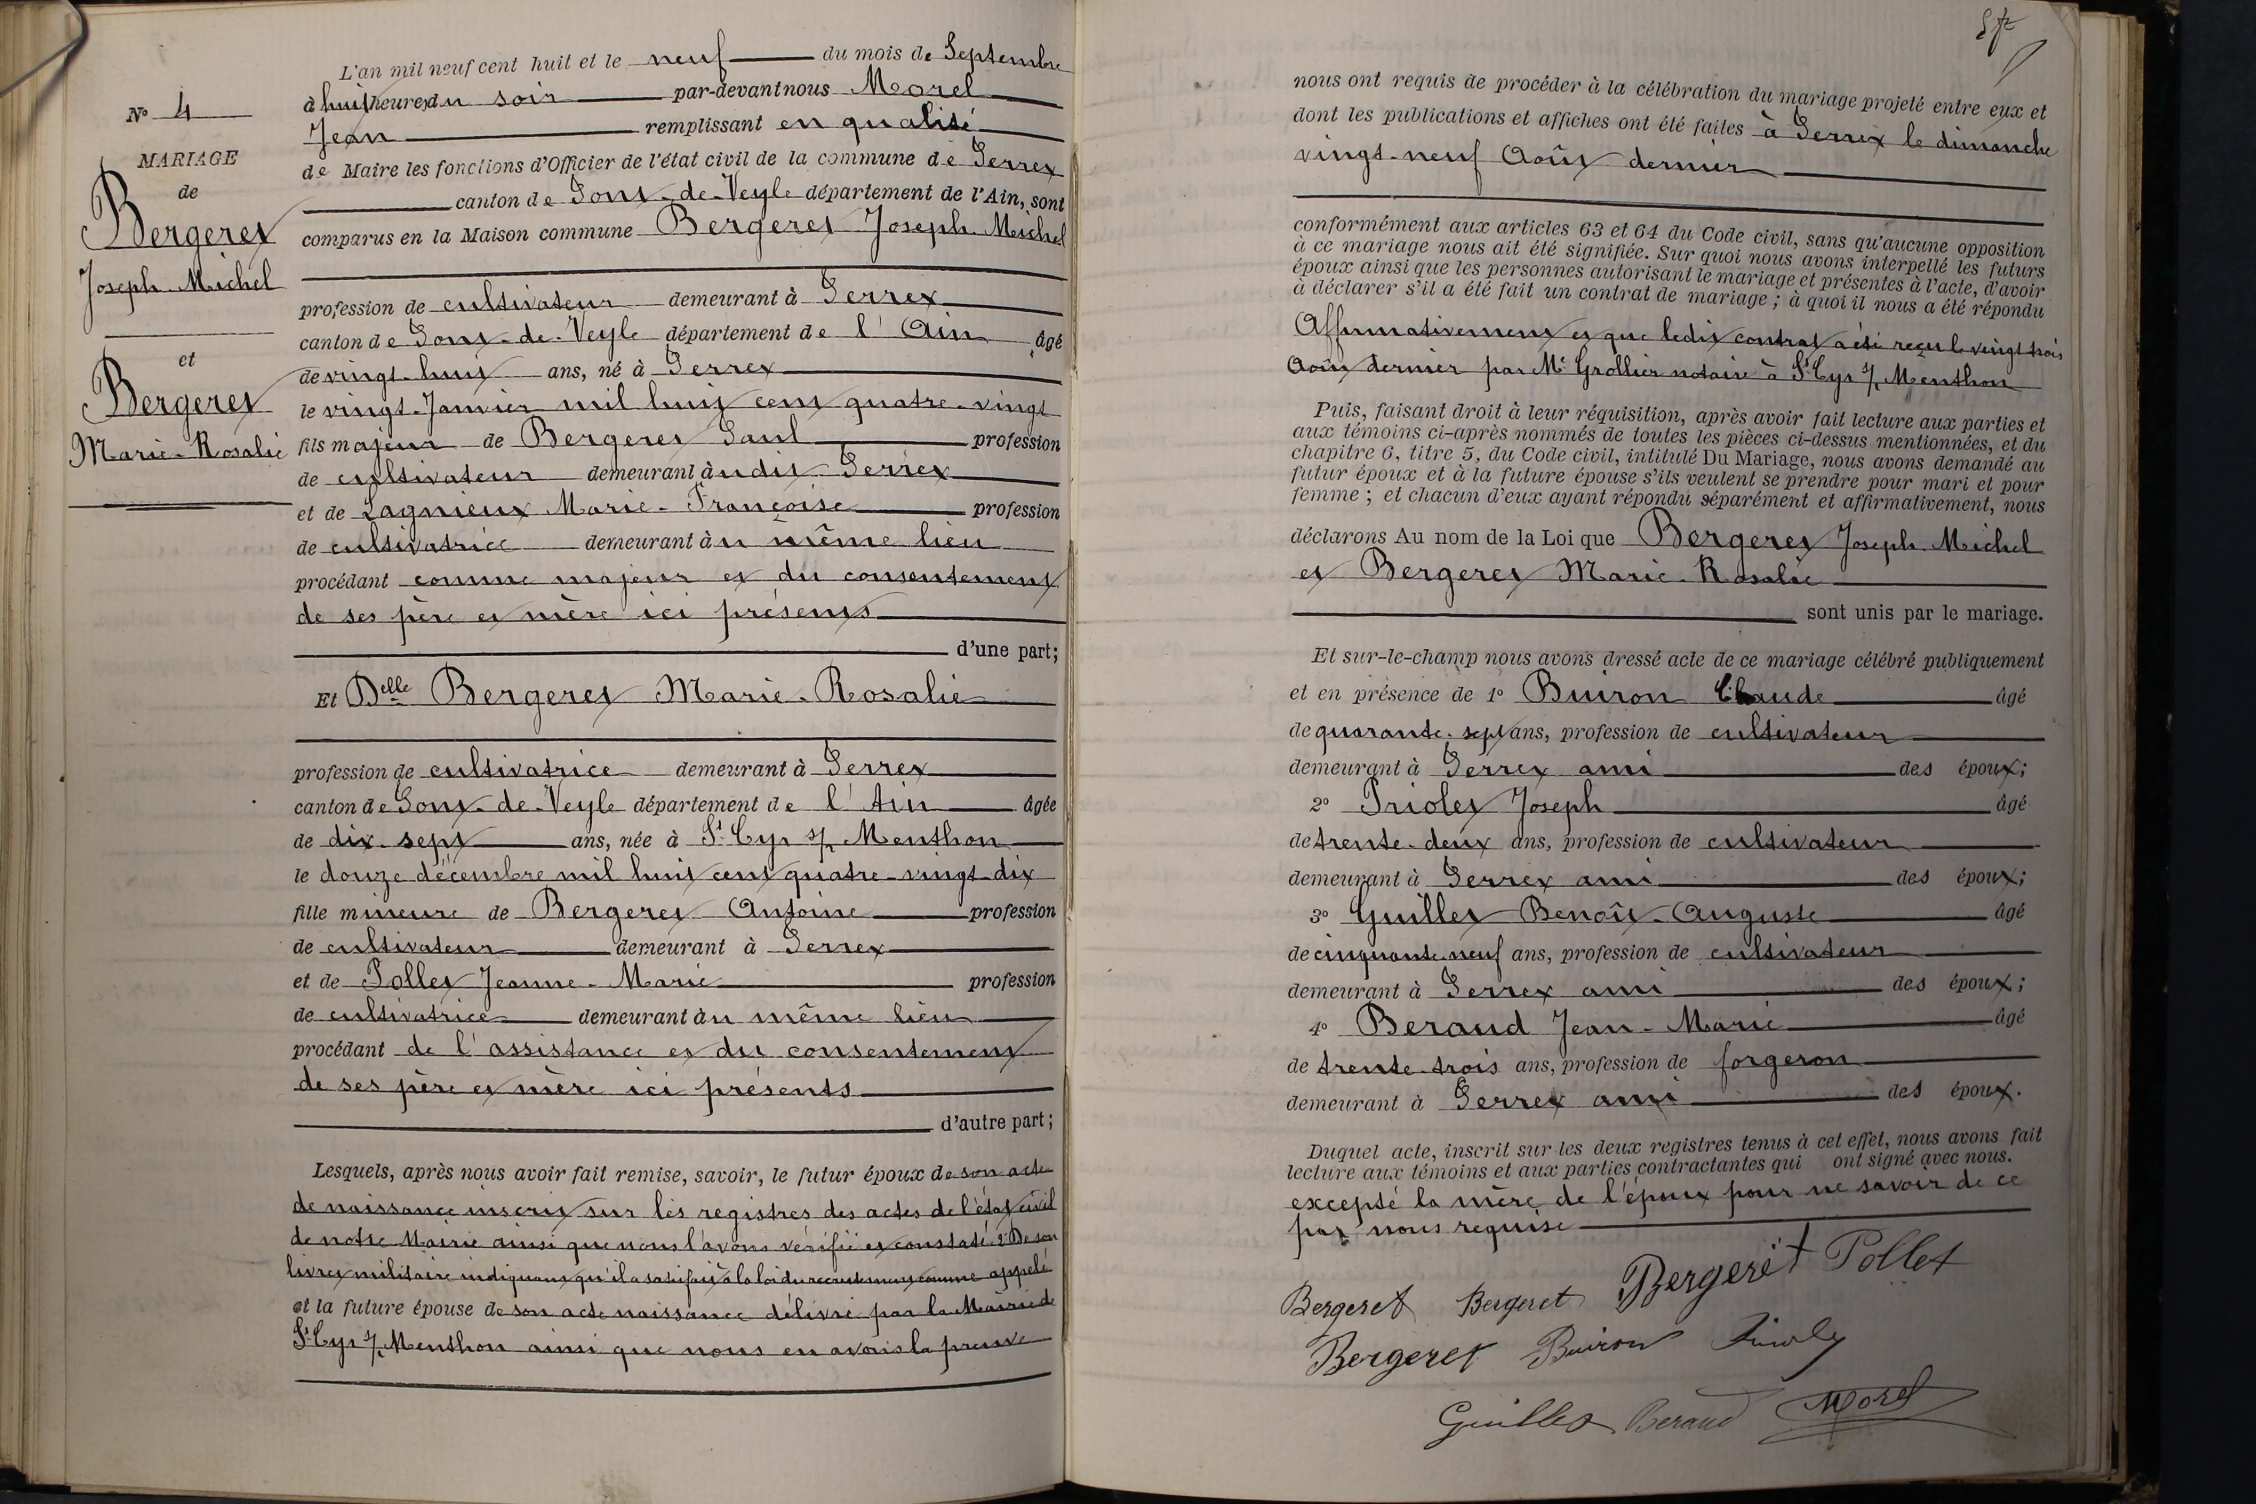 L'an mil neuf cent huit et le neuf du mois de Septembre
à huit heures du soir par-devant nous Morel
Jean remplissant en qualité
de Maire les fonctions d'Officier de l'état civil de la commune de Perrex
canton de Pont-de-Veyle département de l'Ain, sont
comparus en la Maison commune Bergeret Joseph-Michel
profession de cultivateur demeurant à Perrex
canton de Pont-de-Veyle département de l'Ain âgé
de vingt-huit ans, né à Perrex
le vingt-Janvier mil huit cent quatre-vingt
fils majeur de Bergeret Paul profession
de cultivateur demeurant à udit Perrex
et de Lagnieux Marie-Françoise profession
de cultivatrice demeurant àu même lieu
procédant comme majeur et du consentement
de ses père et mère ici présents
d'une part;
Et Delle Bergeret Marie-Rosalie
profession de cultivatrice demeurant à Perrex
canton de Pont-de-Veyle département de l'Ain âgée
de dix-sept ans, née à St Cyr s/ Menthon
le douze décembre mil huit cent quatre-vingt-dix
fille mineure de Bergeret Antoine profession
de cultivateur demeurant à Perrex
et de Pollet Jeanne-Marie profession
de cultivatrice demeurant àu même lieu
procédant de l'assistance et du consentement
de ses père et mère ici présents
d'autre part;
Lesquels, après nous avoir fait remise, savoir, le futur époux de son acte
de naissance inscrit sur les registres des actes de l'état civil
de notre Mairie ainsi que nous l'avons vérifié et constaté. 2° De son
livret militaire indiquant qu'il a satisfait à la loi du recrutement comme appelé
et la future épouse de son acte naissance délivré par la Mairie de
St Cyr s/ Menthon ainsi que nous en avons la preuve
N° 4
MARIAGE
de
Bergeret
Joseph-Michel
et
Bergeret
Marie-Rosalie
nous ont requis de procéder à la célébration du mariage projeté entre eux et
dont les publications et affiches ont été faites à Perrex le dimanche
vingt-neuf Août dernier
conformément aux articles 63 et 64 du Code civil, sans qu'aucune opposition
à ce mariage nous ait été signifiée. Sur quoi nous avons interpellé les futurs
époux ainsi que les personnes autorisant le mariage et présentes à l'acte, d'avoir
à déclarer s'il a été fait un contrat de mariage; à quoi il nous a été répondu
Affirmativement et que ledit contrat a été reçu le vingt trois
Août dernier par Me Grollier notaire à St Cyr s/ Menthon
Puis, faisant droit à leur réquisition, après avoir fait lecture aux parties et
aux témoins ci-après nommés de toutes les pièces ci-dessus mentionnées, et du
chapitre 6, titre 5, du Code civil, intitulé Du Mariage, nous avons demandé au
futur époux et à la future épouse s'ils veulent se prendre pour mari et pour
femme; et chacun d'eux ayant répondu séparément et affirmativement, nous
déclarons Au nom de la Loi que Bergeret Joseph-Michel
et Bergeret Marie-Rosalie
sont unis par le mariage.
Et sur-le-champ nous avons dressé acte de ce mariage célébré publiquement
et en présence de 1° Buiron Claude âgé
de quarante-sept ans, profession de cultivateur
demeurant à Perrex ami des époux;
2° Priolet Joseph âgé
de trente-deux ans, profession de cultivateur
demeurant à Perrex ami des époux;
3° Guillet Benoît-Auguste âgé
de cinquante-neuf ans, profession de cultivateur
demeurant à Perrex ami des époux;
4° Beraud Jean-Marie âgé
de trente-trois ans, profession de forgeron
demeurant à Perrex ami des époux.
Duquel acte, inscrit sur les deux registres tenus à cet effet, nous avons fait
lecture aux témoins et aux parties contractantes qui ont signé avec nous.
excepté la mère de l'époux pour ne savoir de ce
par nous requise
Bergeret Bergeret Bergeret Pollet
Bergeret Buiron
Guillet Beraud Morel